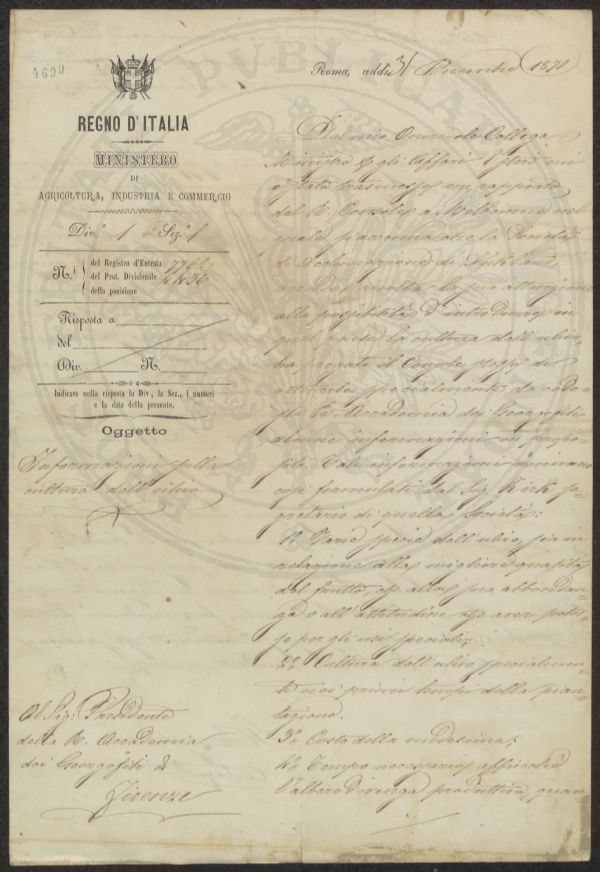 4699
REGNO D'ITALIA
MINISTERO
DI
AGRICOLTURA, INDUSTRIA E COMMERCIO
Div.e 1 Sez.e 1
N.i
del Registro d'Entrata
del Prot. Divisionale
della posizione
Risposta a
del
Div. N.
Indicare nella risposta la Div., la Sez., i numeri
e la data della presente.
Oggetto
Informazioni sulla
cultura dell'ulivo
Al Sig. Presidente
della R. Accademia
dei Georgofili di
Firenze
Roma, addì 31 Decembre 1871
Dal mio Onorevole Collega
Ministro per gli Affari Esteri mi
è stato trasmesso un rapporto
del R. Console a Melbourne nel
quale si accenna che la Società
di acclimazione di
avendo rivolta la sua attenzione
alla possibilità d'introdurre in
quel paese la cultura dell'ulivo,
ha pregato il Console stesso di
ottenerle specialmente da codesta
R. Accademia dei Georgofili
alcune informazioni in propo-
sito. Tali informazioni
così formulate dal Sig. Kirk se-
gretario di quella Società:
1.o Varie specie dell'ulivo, sia in
relazione alla migliore qualità
del frutto, che alla sua abbondan-
za o all'attitudine che aver potes-
se per gli usi speciali;
2.o Cultura dell'ulivo specialmen-
te nei primi tempi della pian-
tagione.
3.o Costo della medesima;
4.o Tempo necessario affinchè
l'albero divenga produttivo, quan-